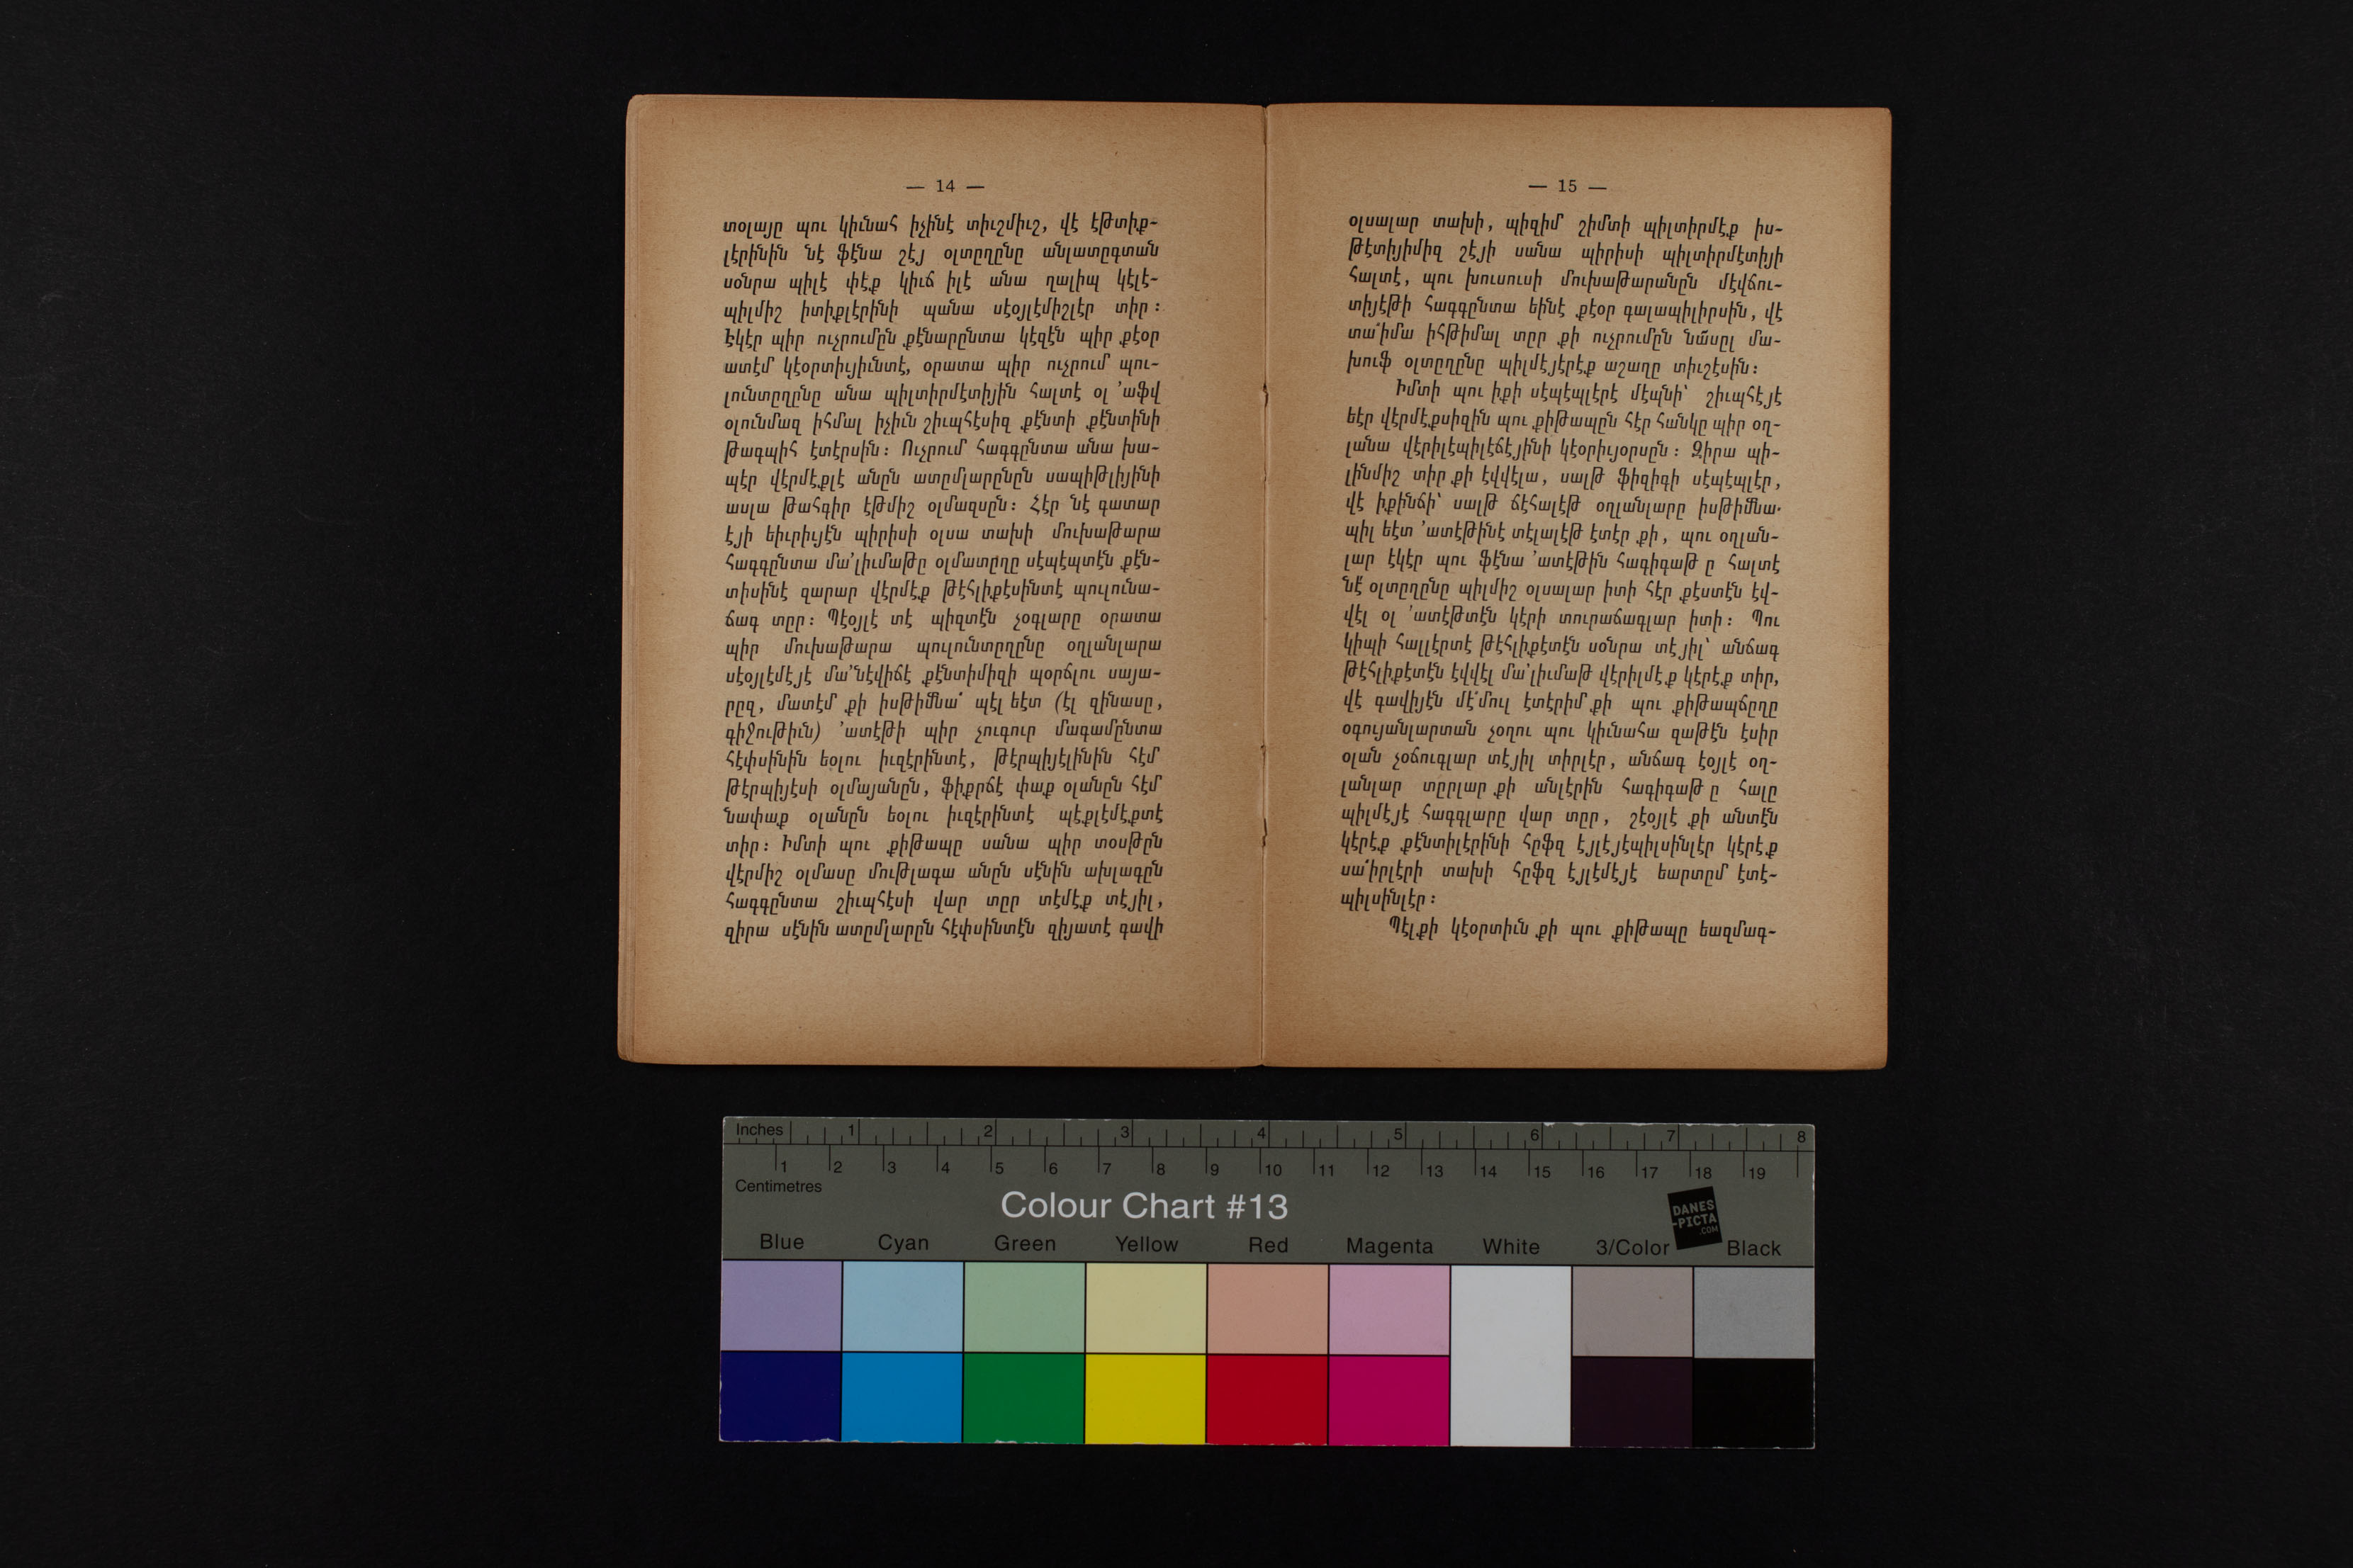 — 14 —
տօլայը պու կիւնահ իչինէ տիւշմիւշ, վէ էթտիք-
լէրինին նէ ֆէնա շէյ օլտըղընը անլատըգտան
սօնրա պիլէ փէք կիւճ իլէ անա ղալիպ կէլէ-
պիլմիշ իտիքլէրինի պանա սէօյլէմիշլէր տիր ։
Էկէր պիր ուչրումըն քէնարընտա կէզէն պիր քէօր
ատէմ կէօրտիւյիւնտէ, օրատա պիր ուչրում պու-
լունտըղընը անա պիլտիրմէտիյին հալտէ օլ ՚աֆվ
օլունմազ իհմալ իչիւն շիւպհէսիզ քէնտի քէնտինի
թագպիհ էտէրսին ։ Ուչրում հագգընտա անա խա-
պէր վէրմէքլէ անըն ատըմլարընըն սապիթլիյինի
ասլա թահգիր էթմիշ օլմազսըն ։ Հէր նէ գատար
էյի եիւրիւյէն պիրիսի օլսա տախի մուխաթարա
հագգընտա մա՚լիւմաթը օլմատըղը սէպէպտէն քէն-
տիսինէ զարար վէրմէք թէհլիքէսինտէ պուլունա-
ճագ տըր ։ Պէօյլէ տէ պիզտէն չօգլարը օրատա
պիր մուխաթարա պուլունտըղընը օղլանլարա
սէօյլէմէյէ մա՚նէվիճէ քէնտիմիզի պօրճլու սայա-
րըզ, մատէմ քի իսթիմնա՛ պէլ եէտ (էլ զինասը,
գիջութիւն) ՚ատէթի պիր չուգուր մագամընտա
հէփսինին եօլու իւզէրինտէ, թէրպիյէլինին հէմ
թէրպիյէսի օլմայանըն, ֆիքրճէ փաք օլանըն հէմ
նափաք օլանըն եօլու իւզէրինտէ պէքլէմէքտէ
տիր ։ Իմտի պու քիթապը սանա պիր տօսթըն
վէրմիշ օլմասը մութլագա անըն սէնին ախլագըն
հագգընտա շիւպհէսի վար տըր տէմէք տէյիլ,
զիրա սէնին ատըմլարըն հէփսինտէն զիյատէ գավի
— 15 —
օլսալար տախի, պիզիմ շիմտի պիլտիրմէք իս-
թէտիյիմիզ շէյի սանա պիրիսի պիլտիրմէտիյի
հալտէ, պու խուսուսի մուխաթարանըն մէվճու-
տիյէթի հագգընտա եինէ քէօր գալապիլիրսին, վէ
տա՛իմա իհթիմալ տըր քի ուչրումըն նասըլ մա-
խուֆ օլտըղընը պիլմէյէրէք աշաղը տիւշէսին ։
Իմտի պու իքի սէպէպլէրէ մէպնի՝ շիւպհէյէ
եէր վէրմէքսիզին պու քիթապըն հէր հանկը պիր օղ-
լանա վէրիլէպիլէճէյինի կէօրիւյօրսըն ։ Զիրա պի-
լինմիշ տիր քի էվվէլա, սալթ ֆիզիգի սէպէպլէր,
վէ իքինճի՝ սալթ ճէհալէթ օղլանլարը իսթիմնա՛
պիլ եէտ ՚ատէթինէ տէլալէթ էտէր քի, պու օղլան-
լար էկէր պու ֆէնա ՚ատէթին հագիգաթ ը հալտէ
նէ օլտըղընը պիլմիշ օլսալար իտի հէր քէստէն էվ-
վէլ օլ ՚ատէթտէն կէրի տուրաճագլար իտի ։ Պու
կիպի հալլէրտէ թէհլիքէտէն սօնրա տէյիլ՝ անճագ
թէհլիքէտէն էվվէլ մա՚լիւմաթ վէրիլմէք կէրէք տիր,
վէ գավիյէն մէ՛մուլ էտէրիմ քի պու քիթապճըղը
օգույանլարտան չօղու պու կիւնահա զաթէն էսիր
օլան չօճուգլար տէյիլ տիրլէր, անճագ էօյլէ օղ-
լանլար տըրլար քի անլէրին հագիգաթ ը հալը
պիլմէյէ հագգլարը վար տըր, շէօյլէ քի անտէն
կէրէք քէնտիլէրինի հըֆզ էյլէյէպիլսինլէր կէրէք
սա՛իրլէրի տախի հըֆզ էյլէմէյէ եարտըմ էտէ-
պիլսինլէր ։
Պէլքի կէօրտիւն քի պու քիթապը եազմագ-
Inches 1 2 3 4 5 6 7 8
1 2 3 4 5 6 7 8 9 10 11 12 13 14 15 16 17 18 19
Centimetres
Colour Chart #13
DANES
-PICTA
.COM
Blue Cyan Green Yellow Red Magenta White 3/Color Black